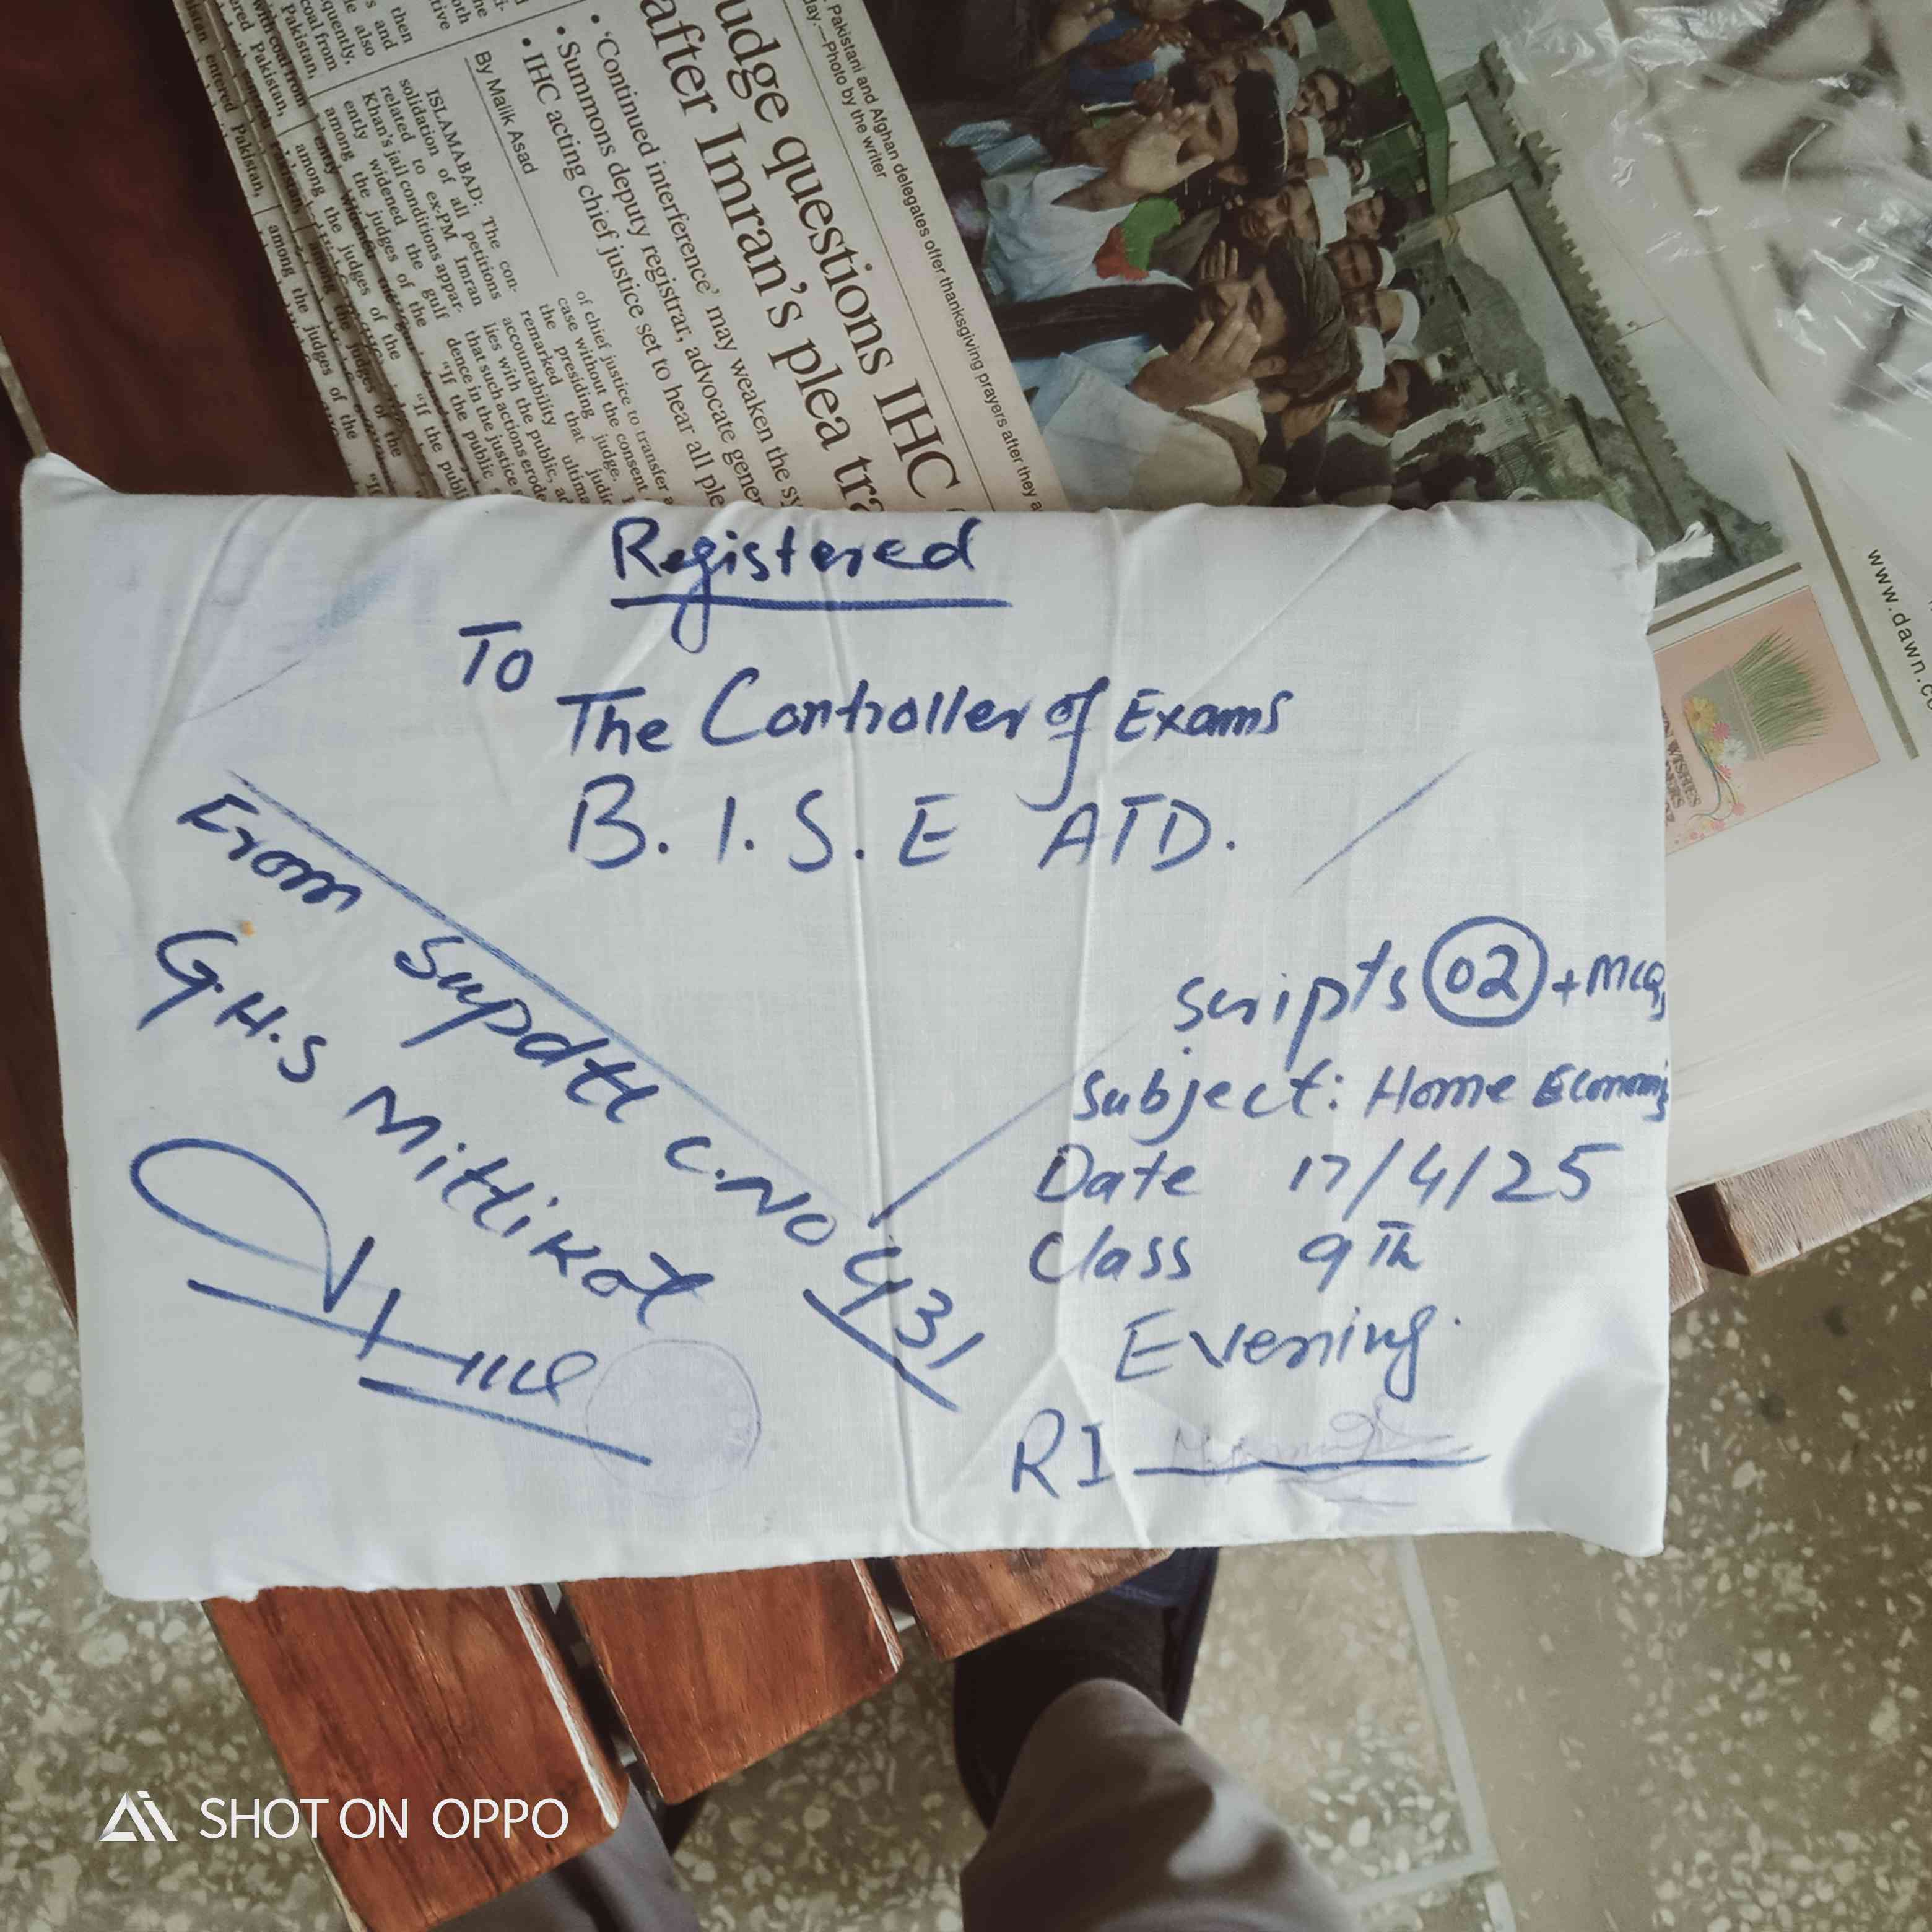 udge questions IHC
after Imran's plea tra
• 'Continued interference' may weaken the sy
• Summons deputy registrar, advocate gener
• IHC acting chief justice set to hear all ple
By Malik Asad
ISLAMABAD: The con-
solidation of all petitions
related to ex-PM Imran
Khan's jail conditions appar-
ently widened the gulf
among the judges of the
of chief justice to transfer a
case without the consent
the presiding judge.
remarked that ultima
accountability judic
lies with the public, ad
that such actions erode
dence in the justice
"If the public
Pakistani and Afghan delegates offer thanksgiving prayers after they a
day.—Photo by the writer
www.dawn.co
Registered
To
The Controller of Exams
B. I. S. E ATD.
From Supdtt C.NO 431
G.H.S Mittikot
Scripts 02 + MCQs
Subject: Home Economics
Date 17/4/25
Class 9th
Evening.
RI
SHOT ON OPPO